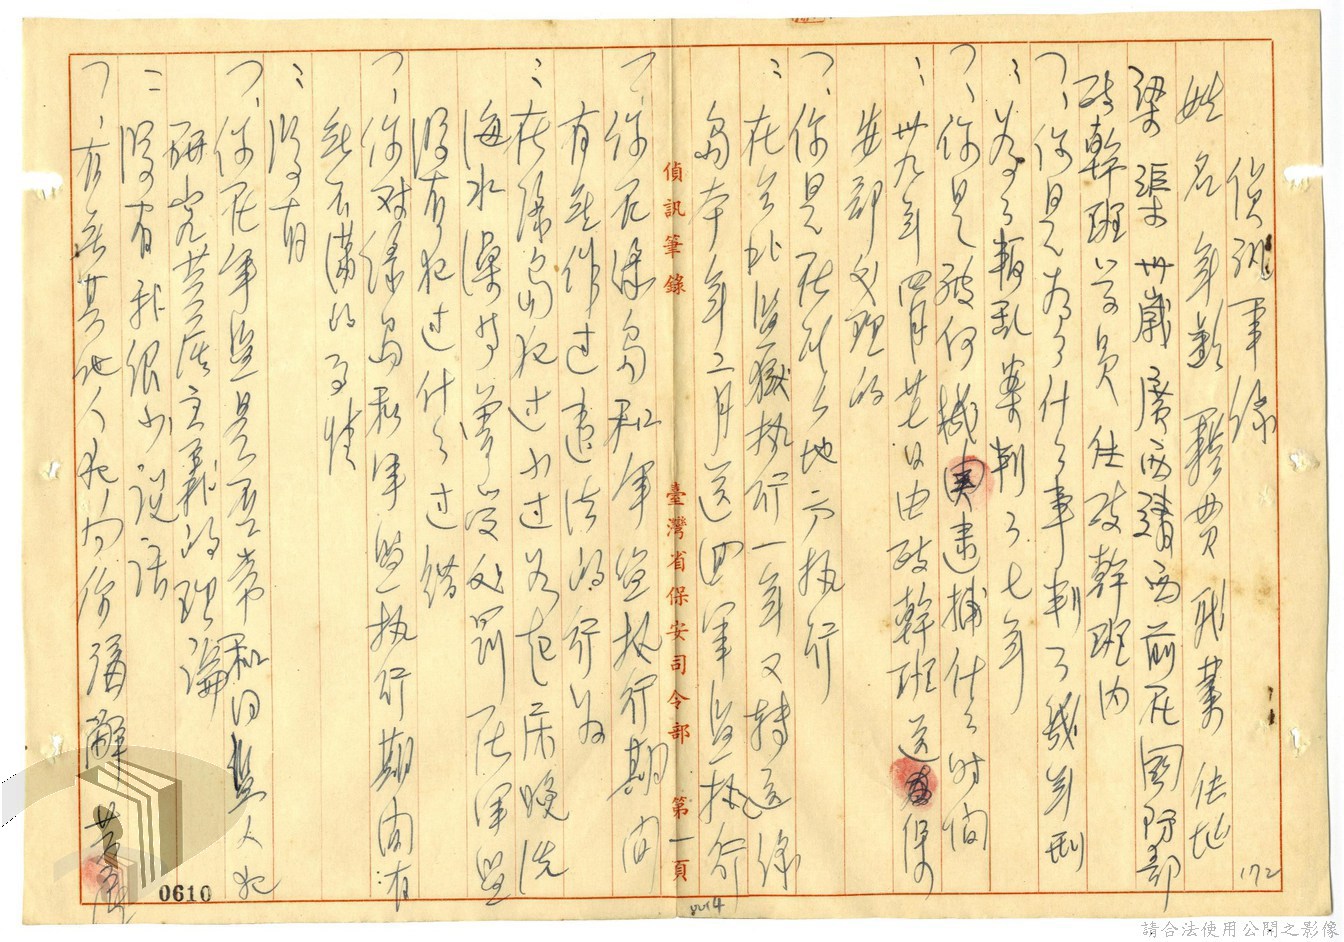 偵訊筆錄
姓名年齡籍貫職業住址
梁渠卅歲廣西靖西前在國防部
政幹班學員住政幹班內
問、你是為了什么事判了幾年刑
答:為了叛亂案判了七年
問、你是被何機逮捕什么時間
答:卅九年四月廿七日由政幹班送保
安部處理的
問、你是在什么地方执行
答:在台北監獄执行一年又轉送綠
島本年二月送回軍監执行
偵訊筆錄 臺灣省保安司令部 第一頁
問、你在綠島和軍監执行期间
有無作过違法的行為
答:在綠島犯过小过為起床晚洗
海水澡時曾受处罰在軍監
沒有犯过什么过錯
問、你对綠島和軍監执行期间有
無不滿的事情
答:沒有
問、你在軍監是否常和同監人犯
研究共產主義的理論
答:沒有我很少說話
問、有無其他人犯向你講解
0610
0014
172
請合法使用公開之影像